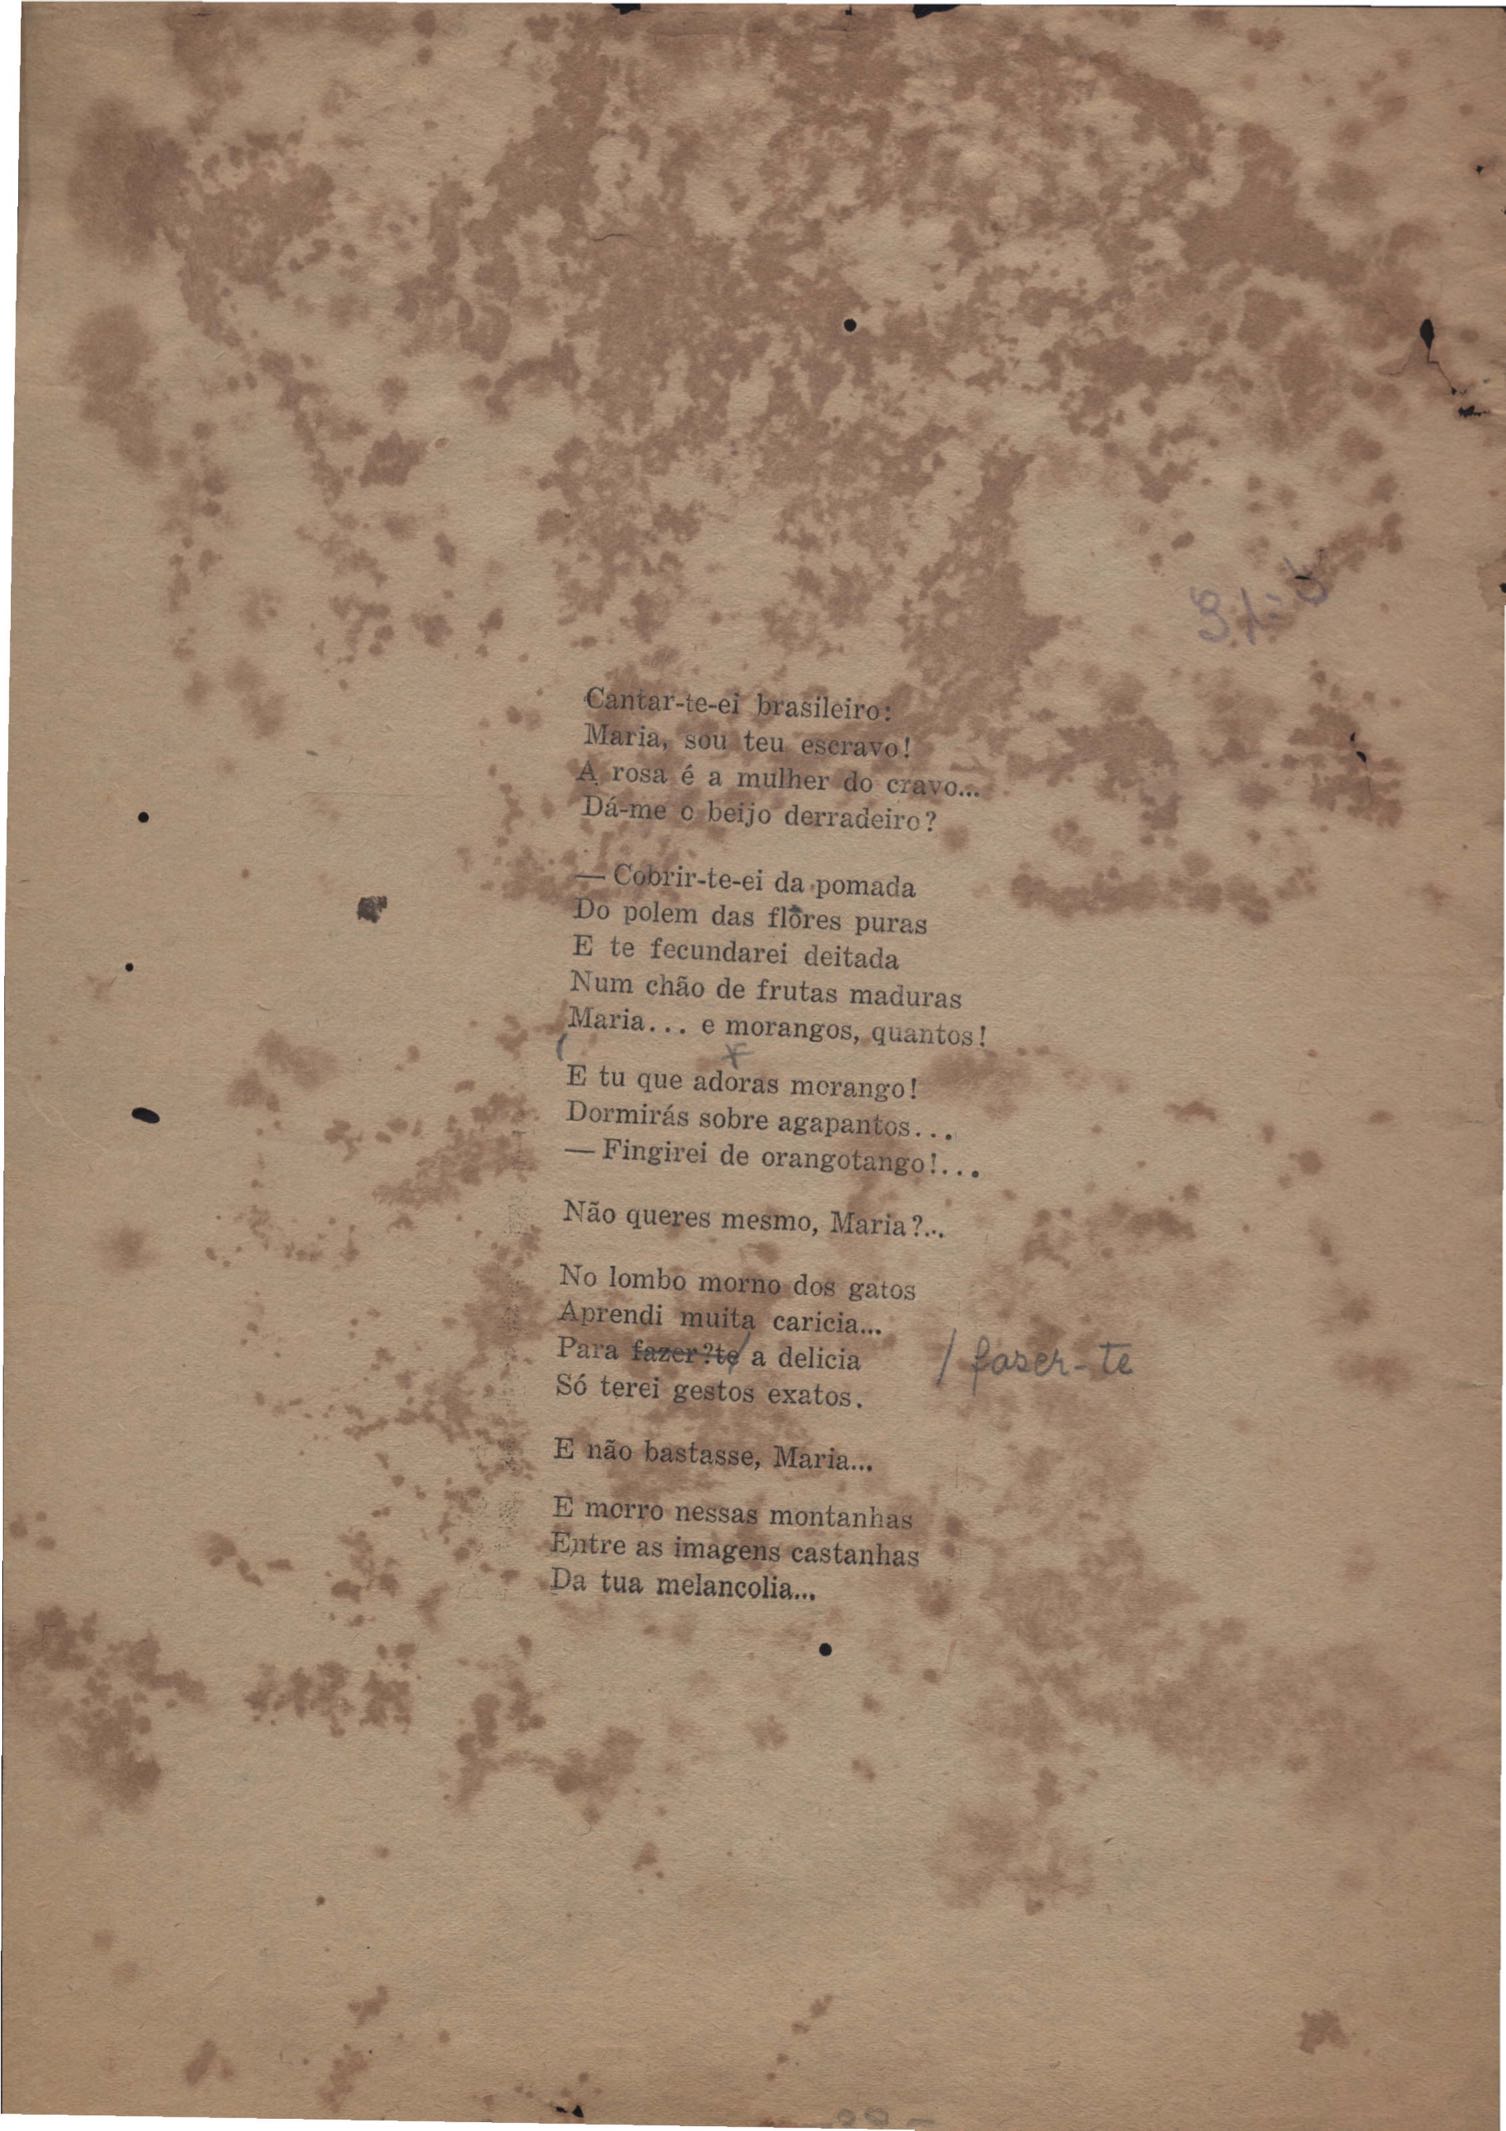 Cantar-te-ei brasileiro:
Maria, sou teu escravo!
A rosa é a mulher do cravo...
Dá-me o beijo derradeiro?
— Cobrir-te-ei da pomada
Do polem das flôres puras
E te fecundarei deitada
Num chão de frutas maduras
Maria... e morangos, quantos!
E tu que adoras morango!
Dormirás sobre agapantos...
— Fingirei de orangotango!...
Não queres mesmo, Maria?...
No lombo morno dos gatos
Aprendi muita caricia...
Para fazer?te a delicia / faser-te
Só terei gestos exatos.
E não bastasse, Maria...
E morro nessas montanhas
Entre as imagens castanhas
Da tua melancolia...